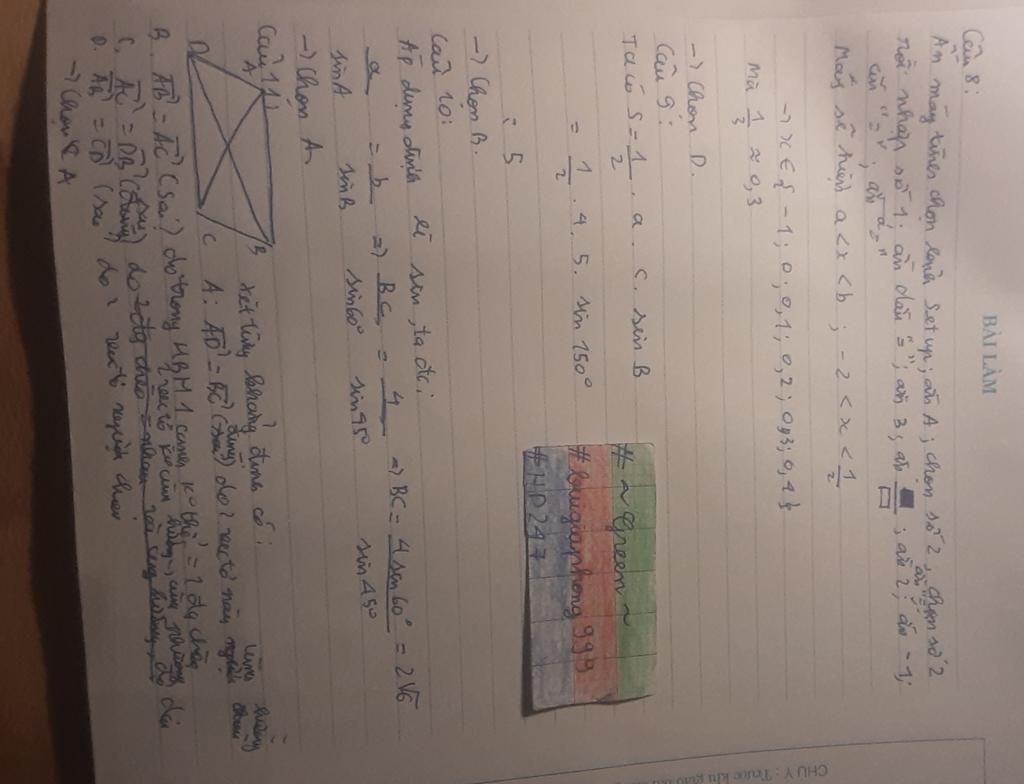 BÀI LÀM
Câu 8:
Ấn máy tính chọn Setup; ấn A; chọn số 2; chọn số 2
rồi nhập số 1; ấn dấu "="; ấn 3; ấn; ấn 2; ấn -1;
ấn "="; ấn "="
Máy sẽ hiện a < x < b; -2 < x < 1/2
→ x ∈ { -1; 0; 0,1; 0,2; 0,3; 0,4}
Mà 1/3 ≈ 0,3
→ Chọn D.
Câu 9:
Ta có S = 1/2 . a . c . sin B
= 1/2 . 4 . 5 . sin 150°
= 5
→ Chọn B.
Câu 10:
Áp dụng định lí sin, ta đc:
a/sin A = b/sin B => BC/sin60° = 4/sin45° => BC = 4 sin60°/sin45° = 2√6
→ Chọn A
Câu 11:
A B
D C
Xét từng khẳng định có:
A. AD = BC (đúng) do 2 vectơ này cùng hướng
B. AB = AC (sai) do trong HBH 1 cạnh k° thể = 1 đg chéo
2 vectơ k° cùng hướng, cùng phương
C. AC = DB (sai) do 2 đg chéo
D. AB = CD (sai) do 2 vectơ ngược chiều
→ Chọn A
# ~ Green ~
# laugiaphong 999
# HD247
CHÚ Ý: Trước khi giao